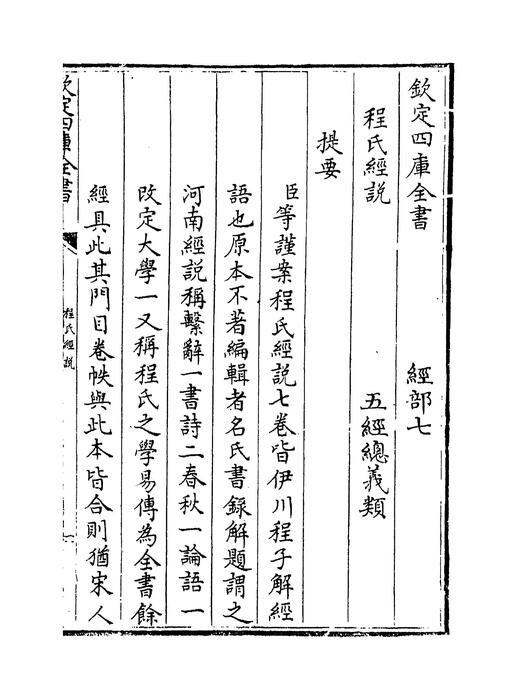 欽定四庫全書　經部七
程氏經說　五經總義類
提要
臣等謹案程氏經說七卷皆伊川程子解經
語也原本不著編輯者名氏書錄解題謂之
河南經說稱繫辭一書詩二春秋一論語一
改定大學一又稱程氏之學易傳為全書餘
經具此其門目卷帙與此本皆合則猶宋人
欽定四庫全書
程氏經說
一